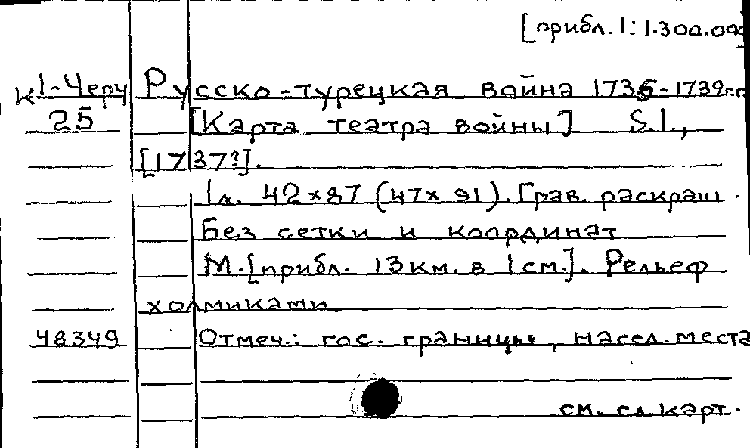 [прибл. 1:1.300.000
К 1-Черч Русско-турецкая война 1735-1739гг.
25 [Карта театра войны] S.l.,
[1737?].
1л. 42×87 (47×91). Грав. раскраш.
Без сетки и координат
М.[прибл. 13км. в 1см.]. Рельеф
холмиками
48349 Отмеч.: гос. границы, насел.места
см. сл.карт.